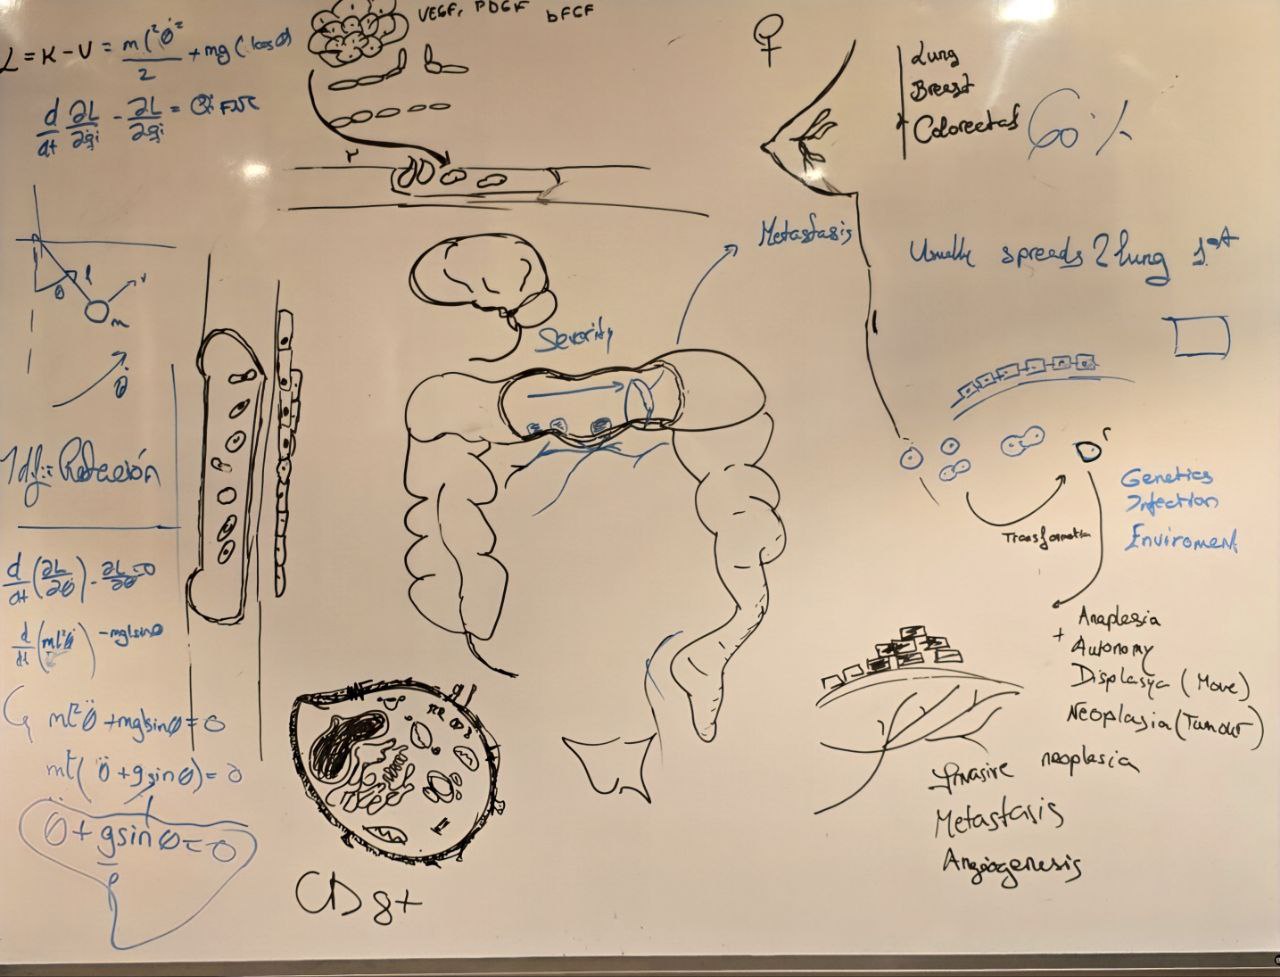 L = K - V = ml²θ̇² / 2 + mg(lcosθ)
d/dt ∂L/∂q̇i - ∂L/∂qi = Qi FNC
θ
l
r
m
θ̇
1 df:= Rotación
d/dt (∂L/∂θ̇) - ∂L/∂θ = 0
d/dt (ml²θ̇) - mglsinθ
ml²θ̈ + mglsinθ = 0
ml²( θ̈ + gsinθ) = 0
θ̈ + gsinθ = 0
l
VEGF, PDGF bFGF
r
Severity
CD8+
♀
Lung
Breast
Colorectal
60%
Metastasis
Usually spreads 2 lung 1st
Transformation
Genetics
Infection
Enviroment
Anaplasia
+
Autonomy
Displasya (Move)
Neoplasia (Tumour)
Invasive neoplasia
Metastasis
Angiogenesis